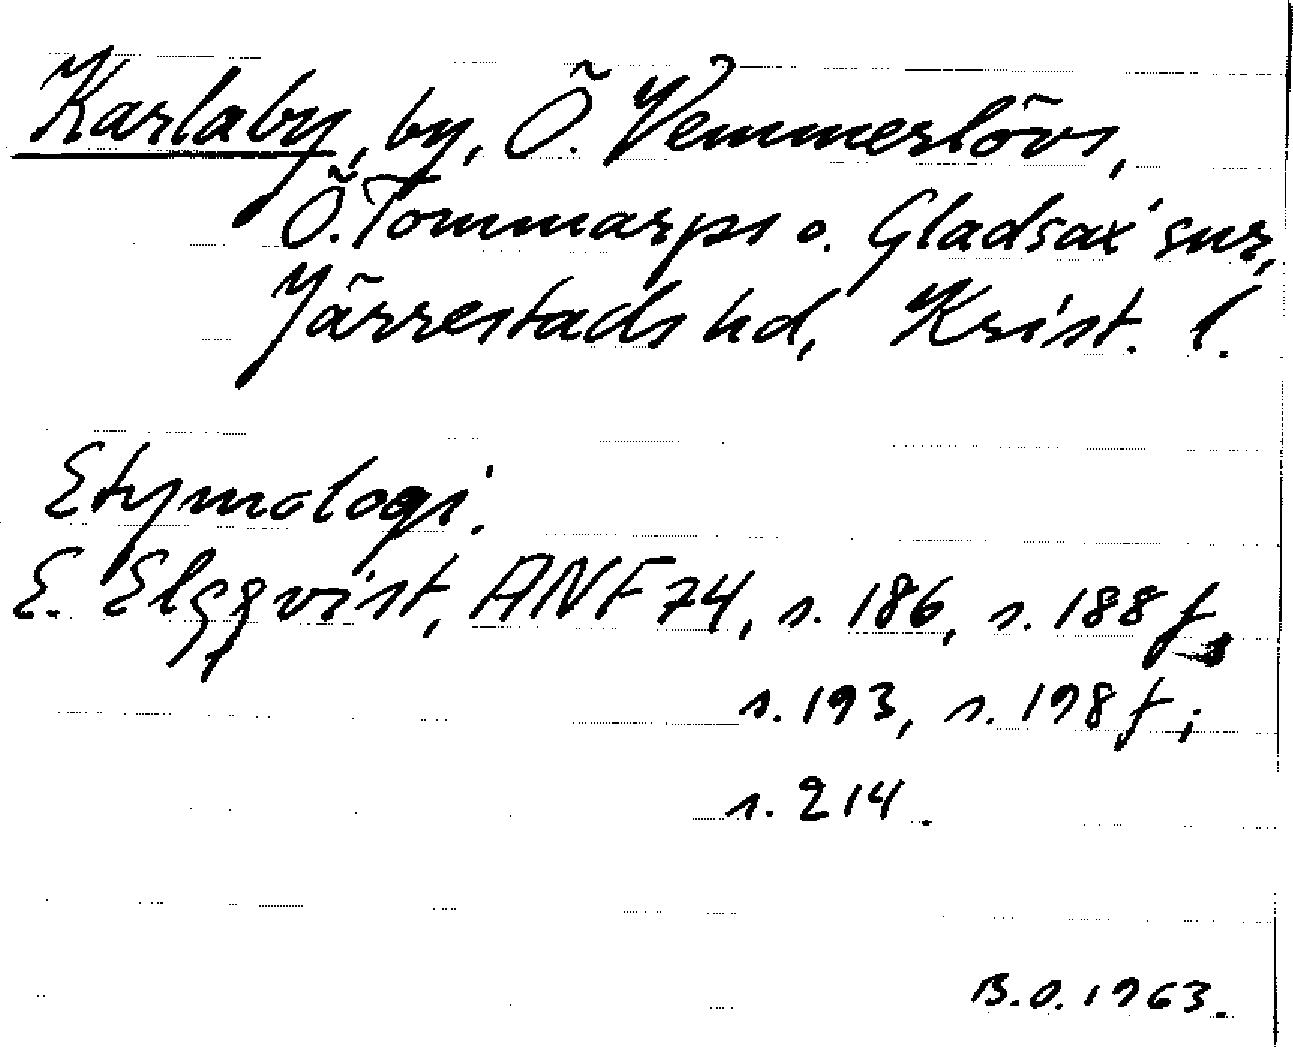 Karlaby, by, Ö. Vemmerlövs,
Ö. Tommarps o. Gladsax' snr,
Järrestads hd, Krist. l.
Etymologi.
E. Elgqvist, ANF 74, s. 186, s. 188 f,
s. 193, s. 198 f;
s. 214.
B.O. 1963.